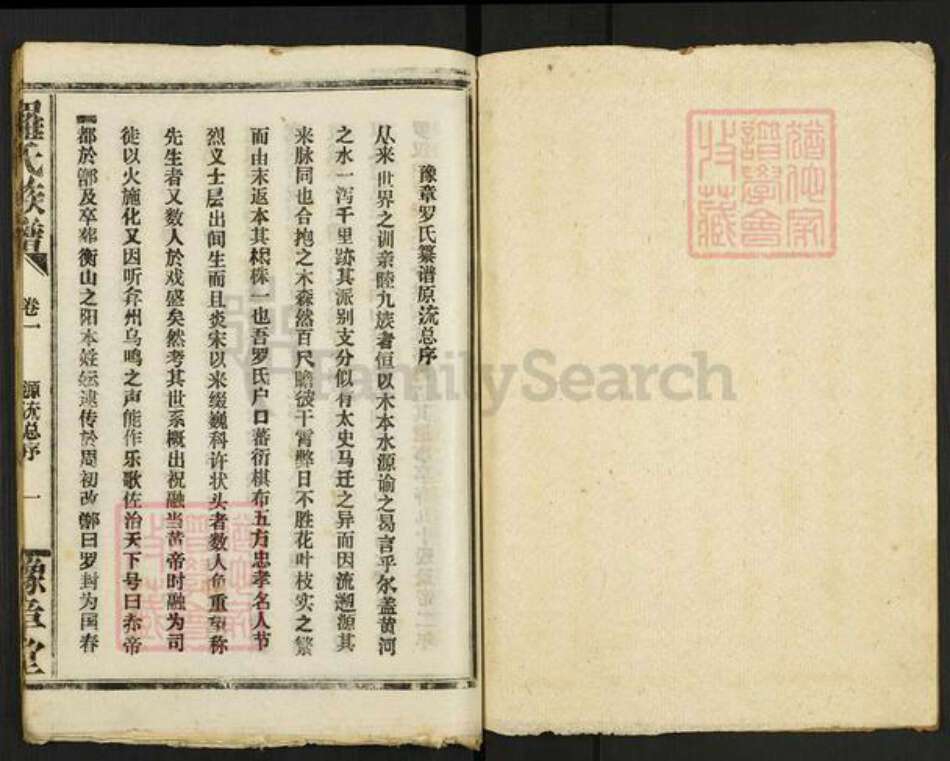 猶他家
譜學會
收藏
豫章罗氏纂谱原流总序
从来世界之训亲睦九族者恒以木本水源谕之曷言乎尔盖黄河
之水一泻千里跡其派别支分似有太史马迁之异而因流遡源其
来脉同也合抱之木森然百尺瞻彼干霄蔽日不胜花叶枝实之繁
而由末返本其根株一也吾罗氏户口蕃衍棋布五方忠孝名人节
烈义士层出间生而且炎宋以来缀巍科许状头者数人负重望称
先生者又数人於戏盛矣然考其世系概出祝融当黄帝时融为司
徒以火施化又因听弇州鸟鸣之声能作乐歌佐治天下号曰赤帝
都於鄫及卒葬衡山之阳本姓妘逮传於周初改鄫曰罗封为国春
羅氏族譜
卷一
源流总序
一
豫章堂
FamilySearch